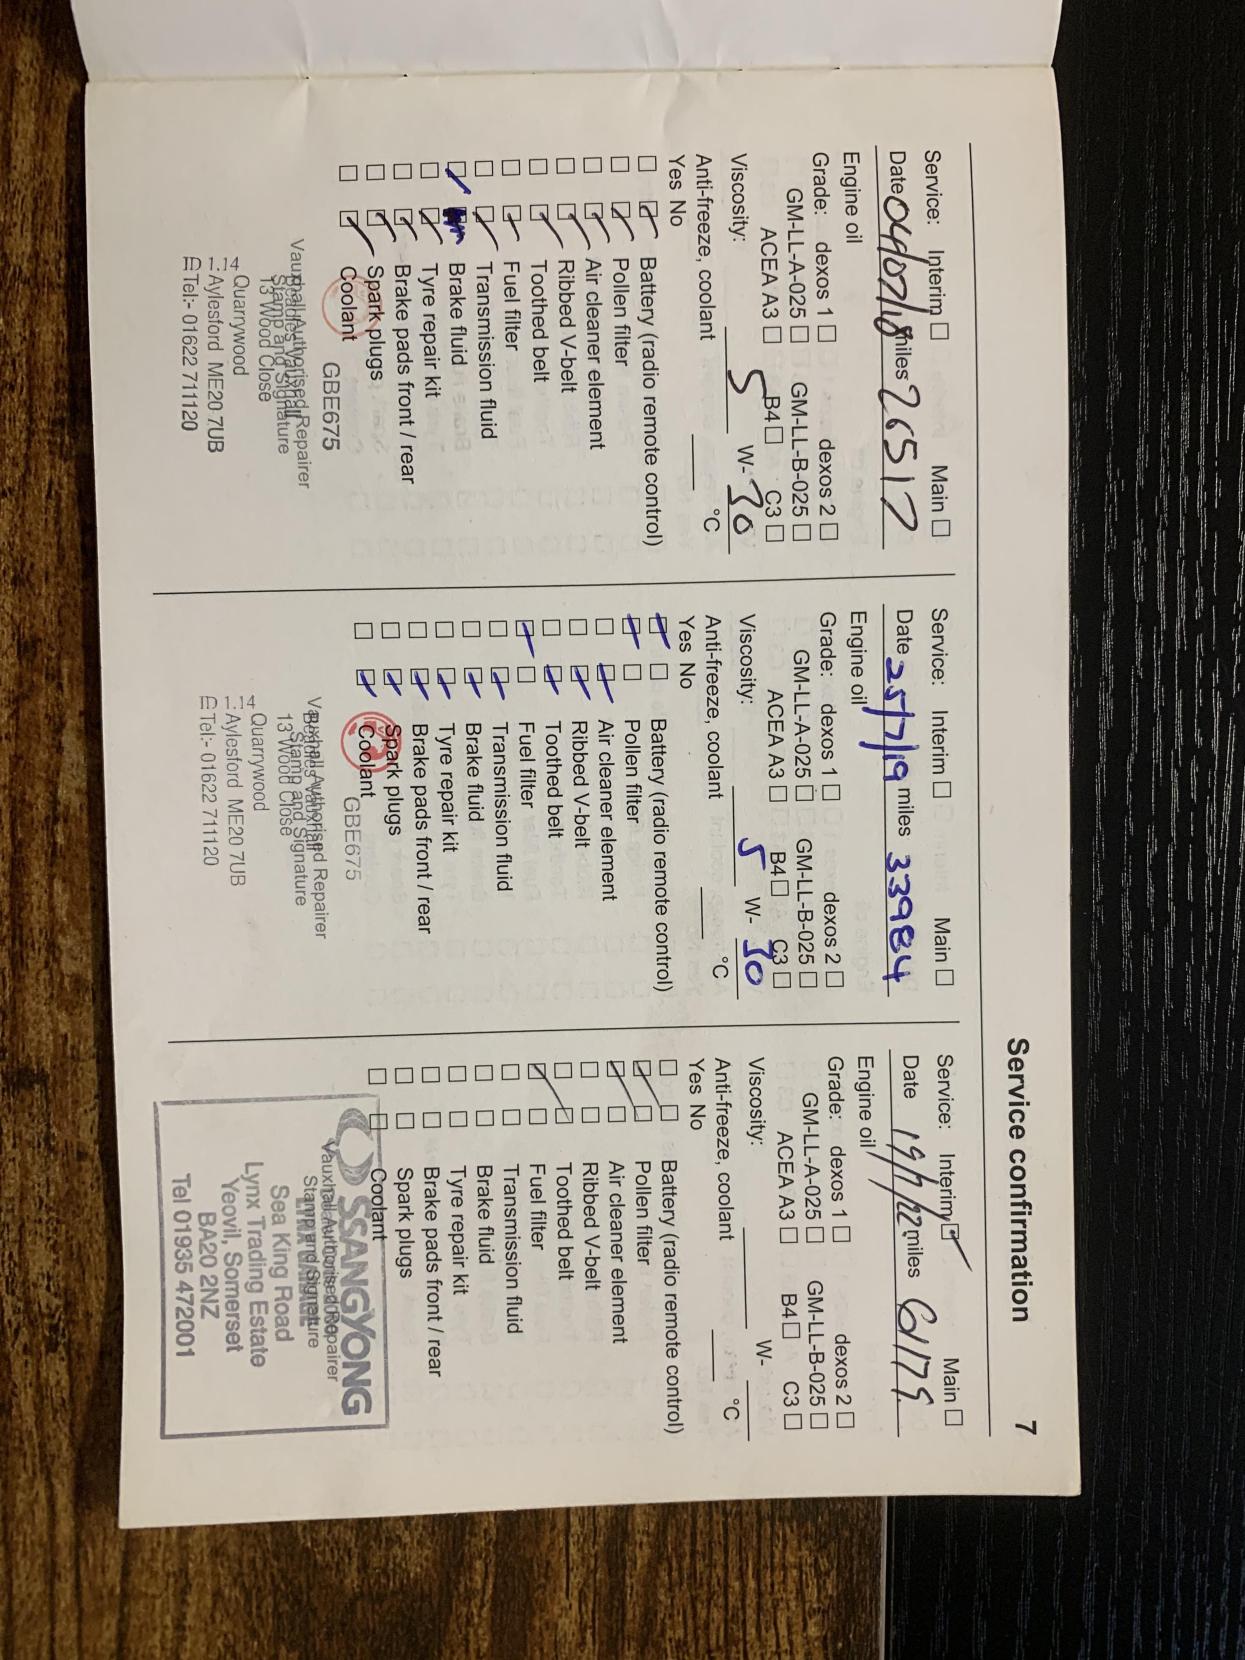 Service confirmation 7
Service: Interim ☐ Main ☐
Date 04/07/18 miles 26517
Engine oil
Grade: dexos 1 ☐ dexos 2 ☐
GM-LL-A-025 ☐ GM-LL-B-025 ☐
ACEA A3 ☐ B4 ☐ C3 ☐
Viscosity: 5 W- 30
Anti-freeze, coolant °C
Yes No
Battery (radio remote control)
Pollen filter
Air cleaner element
Ribbed V-belt
Toothed belt
Fuel filter
Transmission fluid
Brake fluid
Tyre repair kit
Brake pads front / rear
Spark plugs
Coolant
GBE675
Vauxhall Authorised Repairer
Beadles Vauxhall
Stamp and Signature
13 Wood Close
Quarrywood
Aylesford ME20 7UB
Tel:- 01622 711120
Service: Interim ☐ Main ☐
Date 25/7/19 miles 33984
Engine oil
Grade: dexos 1 ☐ dexos 2 ☐
GM-LL-A-025 ☐ GM-LL-B-025 ☐
ACEA A3 ☐ B4 ☐ C3 ☐
Viscosity: 5 W- 30
Anti-freeze, coolant °C
Yes No
Battery (radio remote control)
Pollen filter
Air cleaner element
Ribbed V-belt
Toothed belt
Fuel filter
Transmission fluid
Brake fluid
Tyre repair kit
Brake pads front / rear
Spark plugs
Coolant
GBE675
Vauxhall Authorised Repairer
Beadles Vauxhall
Stamp and Signature
13 Wood Close
Quarrywood
Aylesford ME20 7UB
Tel:- 01622 711120
Service: Interim ☑ Main ☐
Date 19/7/22 miles 61179
Engine oil
Grade: dexos 1 ☐ dexos 2 ☐
GM-LL-A-025 ☐ GM-LL-B-025 ☐
ACEA A3 ☐ B4 ☐ C3 ☐
Viscosity: W-
Anti-freeze, coolant °C
Yes No
Battery (radio remote control)
Pollen filter
Air cleaner element
Ribbed V-belt
Toothed belt
Fuel filter
Transmission fluid
Brake fluid
Tyre repair kit
Brake pads front / rear
Spark plugs
Coolant
SSANGYONG
Vauxhall Authorised Repairer
Stamp and Signature
Sea King Road
Lynx Trading Estate
Yeovil, Somerset
BA20 2NZ
Tel 01935 472001